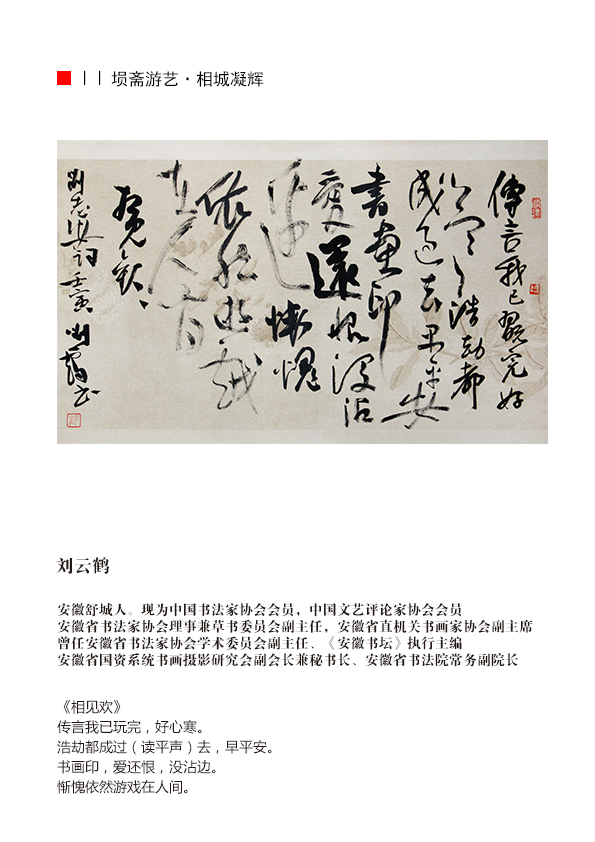 埙斋游艺·相城凝辉
傳言我已翫完好
心寒浩劫都
成過去早平安
書畫印
愛還恨没沾
邊慚愧
依然遊戲
在人間
相見歡
壬寅
刘云鹤
安徽舒城人。现为中国书法家协会会员，中国文艺评论家协会会员
安徽省书法家协会理事兼草书委员会副主任，安徽省直机关书画家协会副主席
曾任安徽省书法家协会学术委员会副主任、《安徽书坛》执行主编
安徽省国资系统书画摄影研究会副会长兼秘书长、安徽省书法院常务副院长
《相见欢》
传言我已玩完，好心寒。
浩劫都成过（读平声）去，早平安。
书画印，爱还恨，没沾边。
惭愧依然游戏在人间。